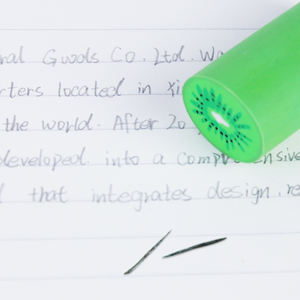 ral Gwols Co. Ltd. Wa
rters located in Xi
the world. After 20
developed into a comprehensive
that integrates design, re